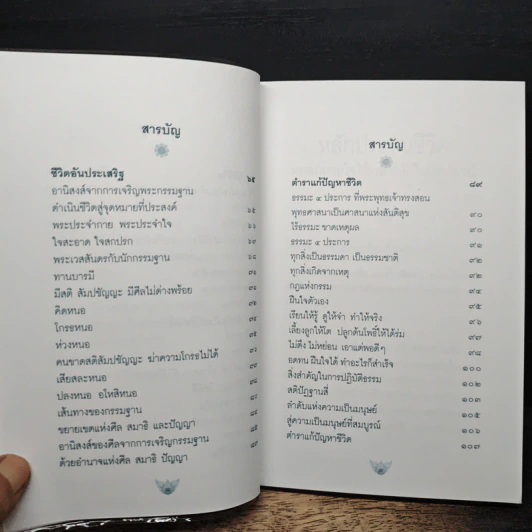 สารบัญ
ชีวิตอันประเสริฐ ๖๕
อานิสงส์จากการเจริญพระกรรมฐาน
ดำเนินชีวิตสู่จุดหมายที่ประสงค์ ๖๕
พระประจำกาย พระประจำใจ
ใจสะอาด ใจสกปรก
พระเวสสันดรกับนักกรรมฐาน
ทานบารมี
มีสติ สัมปชัญญะ มีศีลไม่ด่างพร้อย
คิดหนอ
โกรธหนอ
ห่วงหนอ
คนขาดสติสัมปชัญญะ ฆ่าความโกรธไม่ได้
เสียสละหนอ
ปลงหนอ อโหสิหนอ
เส้นทางของกรรมฐาน
ขยายเขตแห่งศีล สมาธิ และปัญญา
อานิสงส์ของศีลจากการเจริญกรรมฐาน
ด้วยอำนาจแห่งศีล สมาธิ ปัญญา
สารบัญ
ตำราแก้ปัญหาชีวิต ๘๙
ธรรมะ ๔ ประการ ที่พระพุทธเจ้าทรงสอน
พุทธศาสนาเป็นศาสนาแห่งสันติสุข ๙๐
ไร้ธรรมะ ขาดเหตุผล ๙๐
ธรรมะ ๔ ประการ ๙๑
ทุกสิ่งเป็นธรรมดา เป็นธรรมชาติ ๙๒
ทุกสิ่งเกิดจากเหตุ ๙๒
กฎแห่งกรรม ๙๔
ฝืนใจตัวเอง ๙๕
เรียนให้รู้ ดูให้จำ ทำให้จริง ๙๖
เลี้ยงลูกให้โต ปลูกต้นโพธิ์ให้ได้ร่ม ๙๓
ไม่ตึง ไม่หย่อน เอาแต่พอดีๆ ๙๘
อดทน ฝืนใจได้ ทำอะไรก็สำเร็จ ๑๐๐
สิ่งสำคัญในการปฏิบัติธรรม ๑๐๒
สติปัฏฐานสี่ ๑๐๓
ลำดับแห่งความเป็นมนุษย์ ๑๐๕
สู่ความเป็นมนุษย์ที่สมบูรณ์ ๑๐๖
ตำราแก้ปัญหาชีวิต ๑๐๗